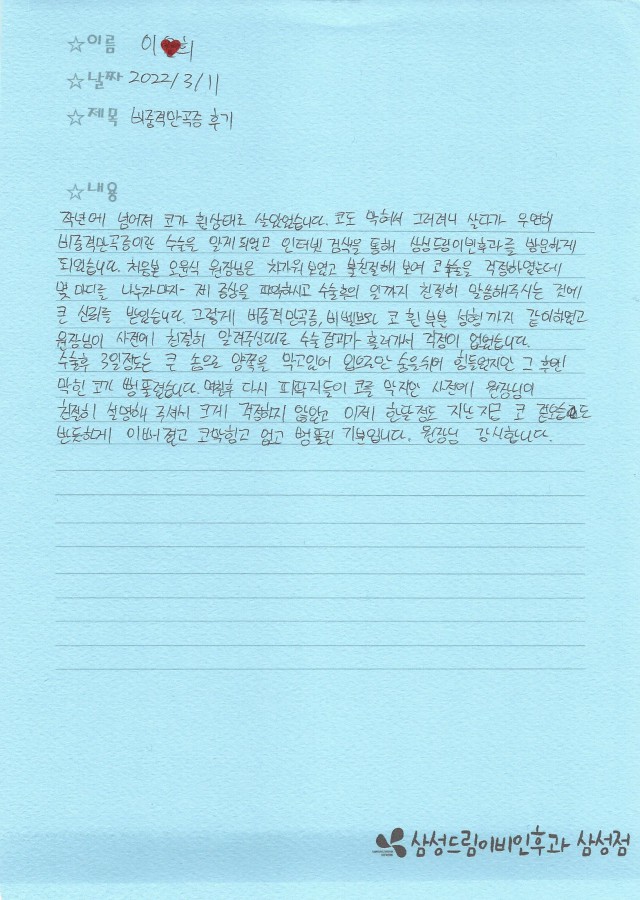 ☆이름 이♥희
☆날짜 2022/3/11
☆제목 비중격만곡증 후기
☆내용
작년에 넘어져 코가 휜상태로 살았었습니다. 코도 막혀서 그러려니 살다가 우연히
비중격만곡증이란 수술을 알게 되었고 인터넷 검색을 통해 삼성드림이비인후과를 방문하게
되었습니다. 처음본 오유식 원장님은 차가워 보였고 불친절해 보여 코수술을 걱정하였는데
몇 마디를 나누자마자 제 증상을 파악하시고 수술후의 일까지 친절히 말씀해주시는 것에
큰 신뢰를 받았습니다. 그렇게 비중격만곡증, 비밸브와 코 휜 부분 성형까지 같이하였고
원장님이 사전에 친절히 알려주신대로 수술결과가 흘러가서 걱정이 없었습니다.
수술후 3일정도는 큰 솜으로 양쪽을 막고있어 입으로만 숨을쉬어 힘들었지만 그 후엔
막힌 코가 뻥 뚫렸습니다. 며칠후 다시 피딱지들이 코를 막지만 사전에 원장님이
친절히 설명해 주셔서 크게 걱정하지 않았고 이제 한달정도 지난 지금 코 겉모습도
반듯하게 이뻐졌고 코막힘고 없고 뻥뚫린 기분입니다. 원장님 감사합니다.
삼성드림이비인후과 삼성점